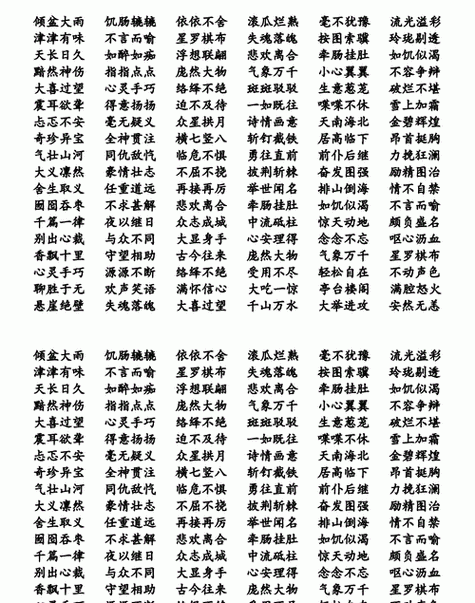 倾盆大雨 饥肠辘辘 依依不舍 滚瓜烂熟 毫不犹豫 流光溢彩
津津有味 不言而喻 星罗棋布 失魂落魄 按图索骥 玲珑剔透
天长日久 如醉如痴 浮想联翩 悲欢离合 牵肠挂肚 如饥似渴
黯然神伤 指指点点 庞然大物 气象万千 小心翼翼 不容争辩
大喜过望 心灵手巧 络绎不绝 斑斑驳驳 生意葱茏 破烂不堪
震耳欲聋 得意扬扬 迫不及待 一如既往 喋喋不休 雪上加霜
忐忑不安 毫无疑义 众星拱月 诗情画意 天南海北 金碧辉煌
奇珍异宝 全神贯注 横七竖八 斩钉截铁 居高临下 昂首挺胸
气壮山河 同仇敌忾 临危不惧 勇往直前 前仆后继 力挽狂澜
大义凛然 豪情壮志 不屈不挠 披荆斩棘 奋发图强 励精图治
舍生取义 任重道远 再接再厉 举世闻名 排山倒海 情不自禁
囫囵吞枣 不求甚解 悲欢离合 牵肠挂肚 如饥似渴 不言而喻
千篇一律 夜以继日 众志成城 中流砥柱 惊天动地 颇负盛名
别出心裁 与众不同 大显身手 心安理得 念念不忘 呕心沥血
香飘十里 守望相助 古今往来 庞然大物 气象万千 星罗棋布
心灵手巧 源源不断 络绎不绝 受用不尽 轻松自在 不动声色
聊胜于无 欢声笑语 满怀信心 大吃一惊 亭台楼阁 满腔怒火
悬崖绝壁 失魂落魄 大喜过望 千山万水 大举进攻 安然无恙
倾盆大雨 饥肠辘辘 依依不舍 滚瓜烂熟 毫不犹豫 流光溢彩
津津有味 不言而喻 星罗棋布 失魂落魄 按图索骥 玲珑剔透
天长日久 如醉如痴 浮想联翩 悲欢离合 牵肠挂肚 如饥似渴
黯然神伤 指指点点 庞然大物 气象万千 小心翼翼 不容争辩
大喜过望 心灵手巧 络绎不绝 斑斑驳驳 生意葱茏 破烂不堪
震耳欲聋 得意扬扬 迫不及待 一如既往 喋喋不休 雪上加霜
忐忑不安 毫无疑义 众星拱月 诗情画意 天南海北 金碧辉煌
奇珍异宝 全神贯注 横七竖八 斩钉截铁 居高临下 昂首挺胸
气壮山河 同仇敌忾 临危不惧 勇往直前 前仆后继 力挽狂澜
大义凛然 豪情壮志 不屈不挠 披荆斩棘 奋发图强 励精图治
舍生取义 任重道远 再接再厉 举世闻名 排山倒海 情不自禁
囫囵吞枣 不求甚解 悲欢离合 牵肠挂肚 如饥似渴 不言而喻
千篇一律 夜以继日 众志成城 中流砥柱 惊天动地 颇负盛名
别出心裁 与众不同 大显身手 心安理得 念念不忘 呕心沥血
香飘十里 守望相助 古今往来 庞然大物 气象万千 星罗棋布